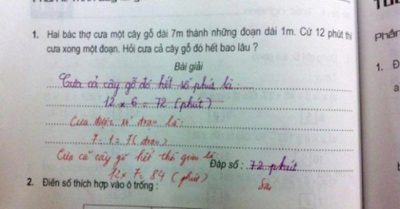 1. Hai bác thợ cưa một cây gỗ dài 7m thành những đoạn dài 1m. Cứ 12 phút thì
cưa xong một đoạn. Hỏi cưa cả cây gỗ đó hết bao lâu ?
Bài giải
Cưa cả cây gỗ đó hết số phút là:
12 x 6 = 72 (phút)
Cưa được số đoạn là:
7 : 1 = 7 (đoạn)
Cưa cả cây gỗ hết thời gian là
Đáp số : 72 phút
12 x 7 = 84 (phút)
Sai
2. Điền số thích hợp vào ô trống :
phần
1.